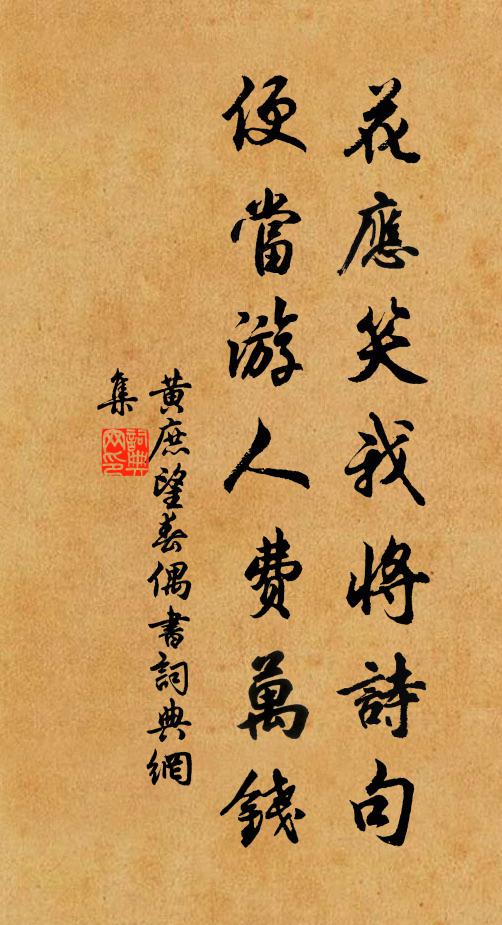 花應笑我將詩句
便當游人費萬錢
黃庶望春偶書詞典網
集
詞典網印